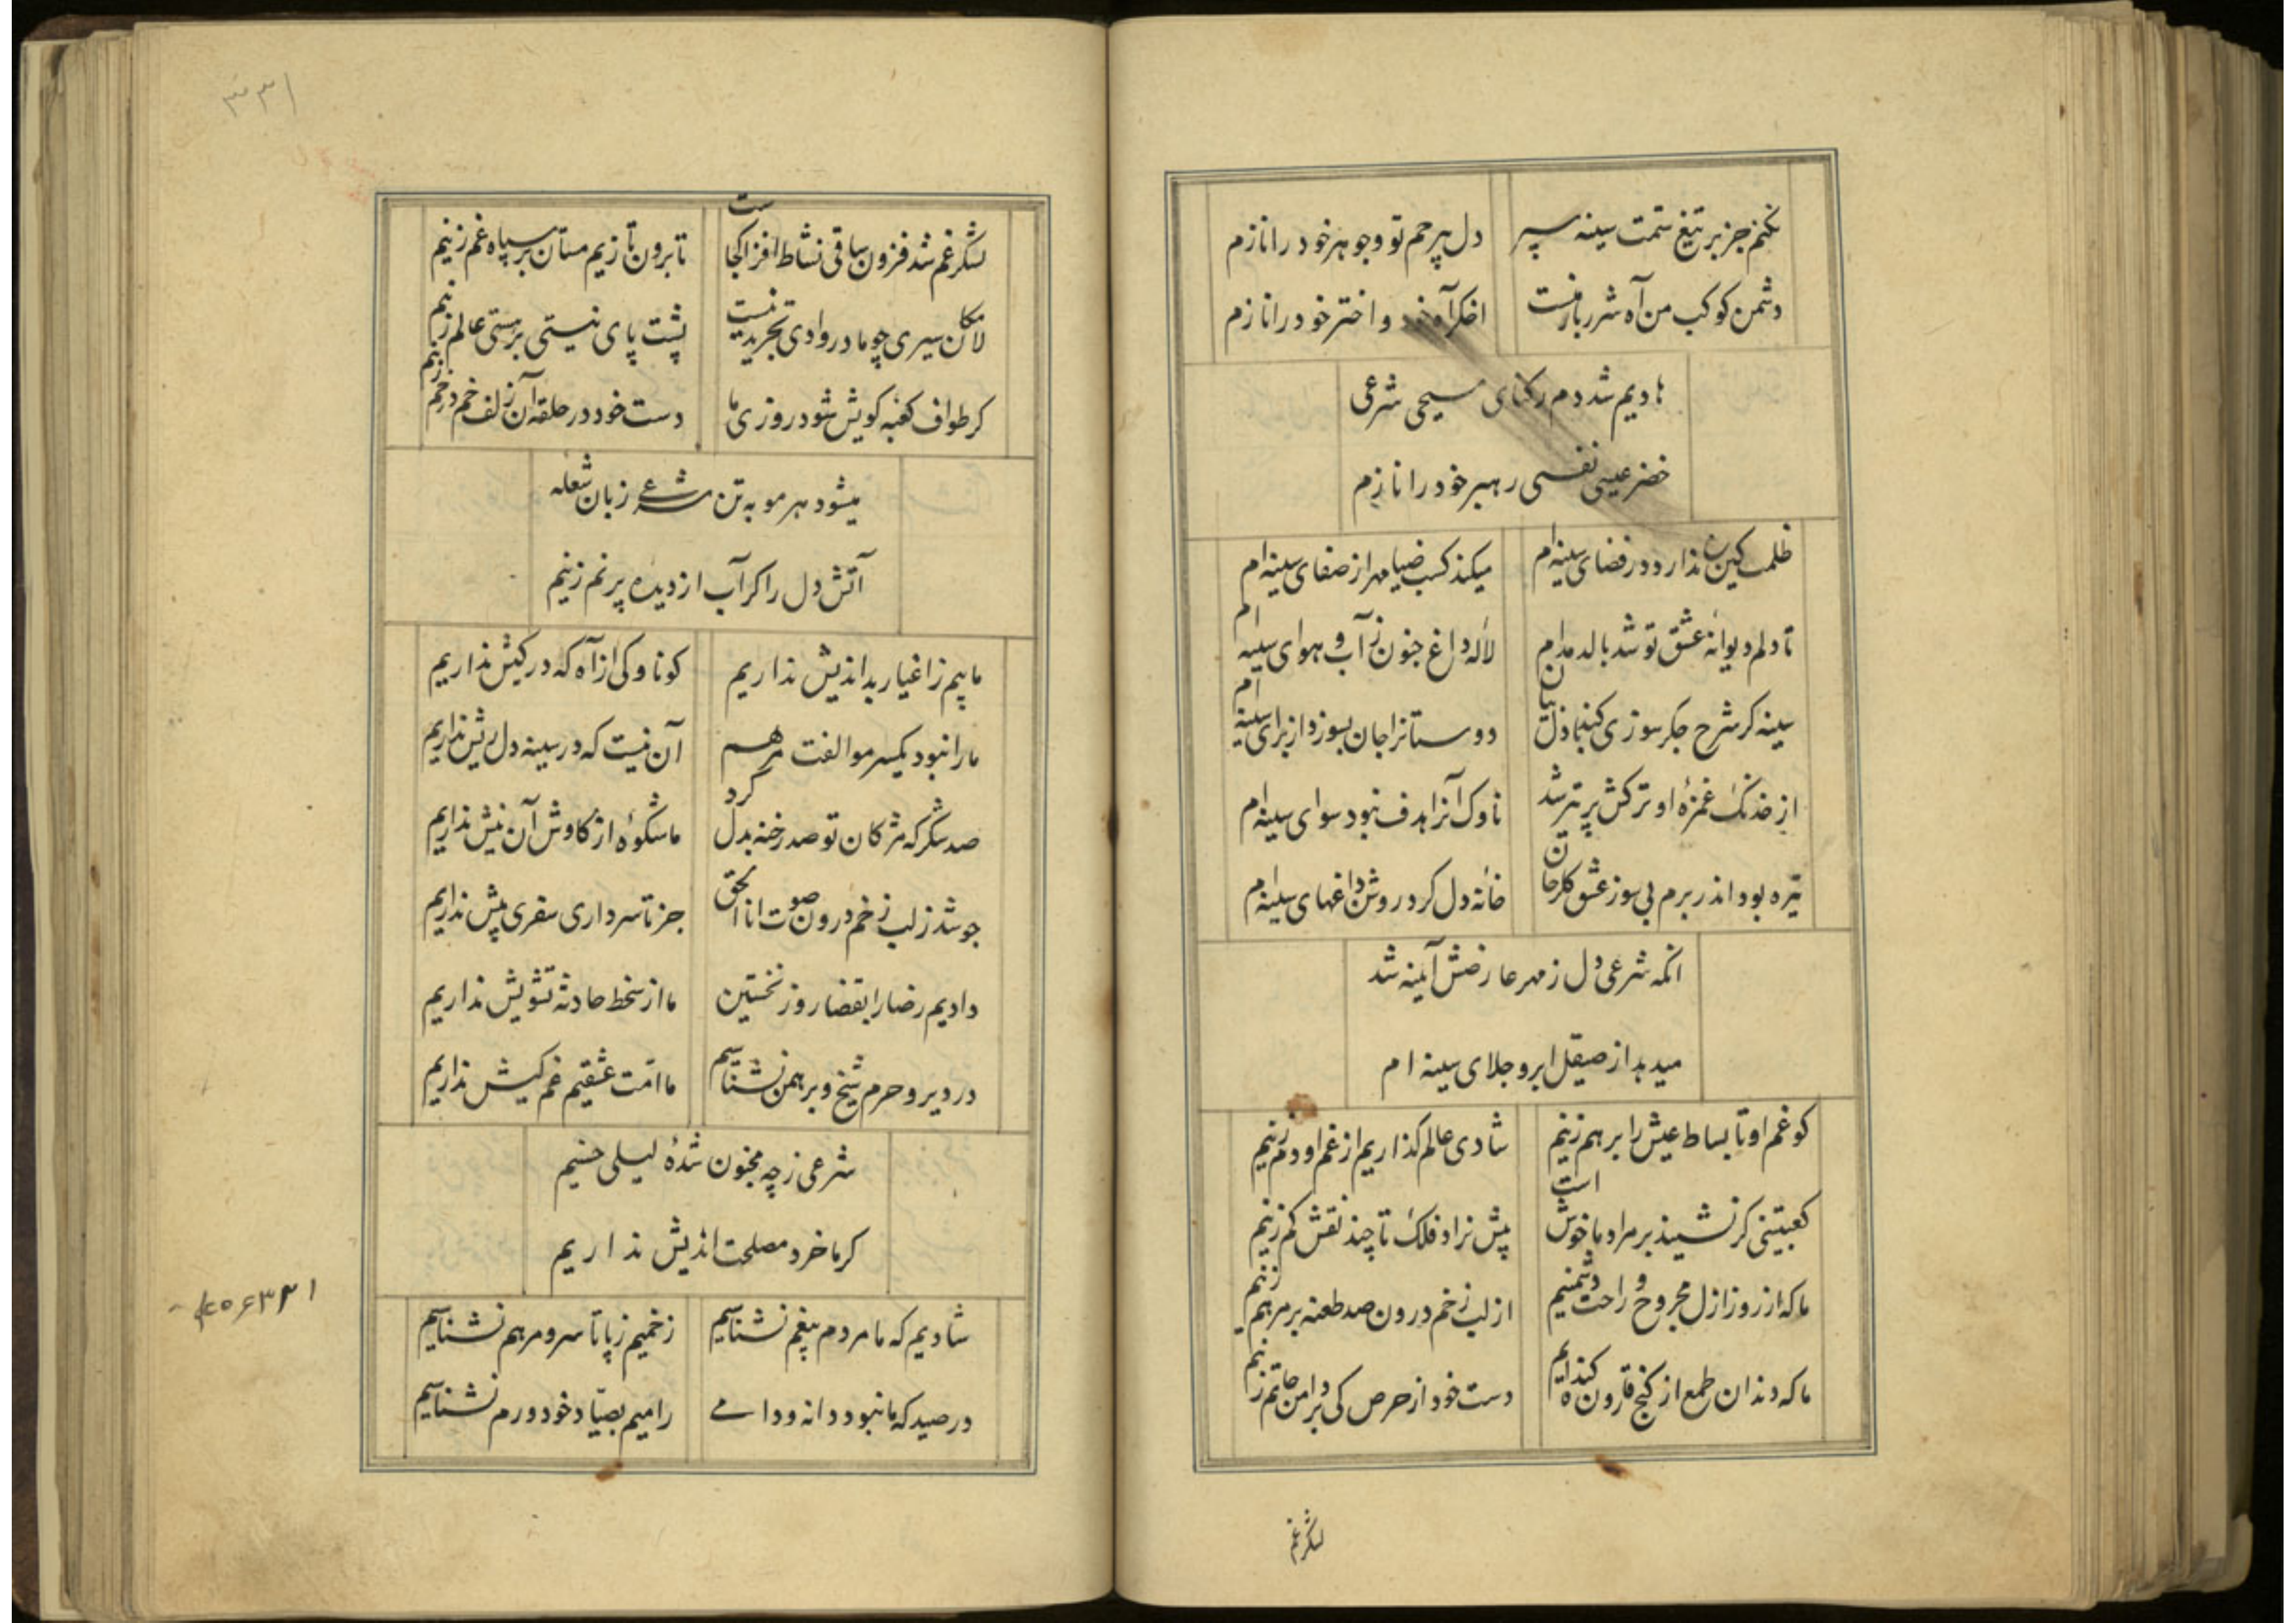 نکنم جز بر تیغ ستمت سینه سپر دل پر حم تو و جوهر خود را نازم
دشمن کوکب من آه شرر بار منست اخکر آه خود و اختر خود را نازم
هادیم شد دم رکنای مسیحی شرعی
خضر عیسی نفسی رهبر خود را نازم
ظلمت کین ندارد در فضای سینه‌ام میکند کسب ضیا مهر از صفای سینه‌ام
تا دلم دیوانه عشق تو شد بالد مدام لاله داغ جنون ز آب و هوای سینه ام
سینه کر شرح جکر سوزی کند با ذلق بیان دوستانرا جان بسوزد از برای سینه ام
از خدنک غمزهٔ او ترکش پر تیر شد ناوک آنرا هدف نبود سوای سینه‌ام
تیره بود اندر برم بی سوز عشق کلرخان خانه دل کرد روشن داغهای سینه‌ام
انکه شرعی دل ز مهر عارضش آینه شد
میدهد از صیقل ابرو جلای سینه ام
کو غم او تا بساط عیش را برهم زنیم شادی عالم کذاریم از غم او دم زنیم
کعبتینی کر نشیند بر مراد ما خوش است پیش نراد فلک تا چند نقش کم زنیم
ما که از روز ازل مجروح و راحت دشمنیم از لب زخم درون صد طعنه بر مرهم زنیم
ما که دندان طمع از کنج قارون کنده ایم دست خود از حرص کی بر دامن حاتم زنیم
لشکر غم
۳۳۱
لشکر غم شد فزون ساقی نشاط افزا کجاست تا برون تازیم مستان بر سپاه غم زنیم
لا مکان سیری چو ما در وادی تجرید نیست پشت پای نیستی بر هستی عالم زنیم
کر طواف کعبه کویش شود روزی ما دست خود در حلقه آن زلف خم در خم زنیم
میشود هر مو به تن شرعی زبان شعله
آتش دل را کر آب از دیده پر نم زنیم
ما بیم ز اغیار بد اندیش نداریم کو ناوکی از آه که در کیش نداریم
ما را نبود یکسر مو الفت مرهم آن نیست که در سینه دل ریش نداریم
صد شکر که مژکان تو صد رخنه بدل کرد ما شکوه از کاوش آن نیش نداریم
جوشد ز لب زخم درون صوت انا الحق جز تا سر داری سفری پیش نداریم
دادیم رضا را بقضا روز نخستین ما از سخط حادثه تشویش نداریم
در دیر و حرم شیخ و برهمن نشناسیم ما امت عشقیم غم کیش نداریم
شرعی ز چه مجنون شدهٔ لیلی حسنیم
کر ما خرد مصلحت اندیش نداریم
شادیم که ما مردم بیغم نشناسیم زخمیم ز پا تا سر و مرهم نشناسیم
در صید که ما نبود دانه و دامی رامیم بصیاد خود و رم نشناسیم